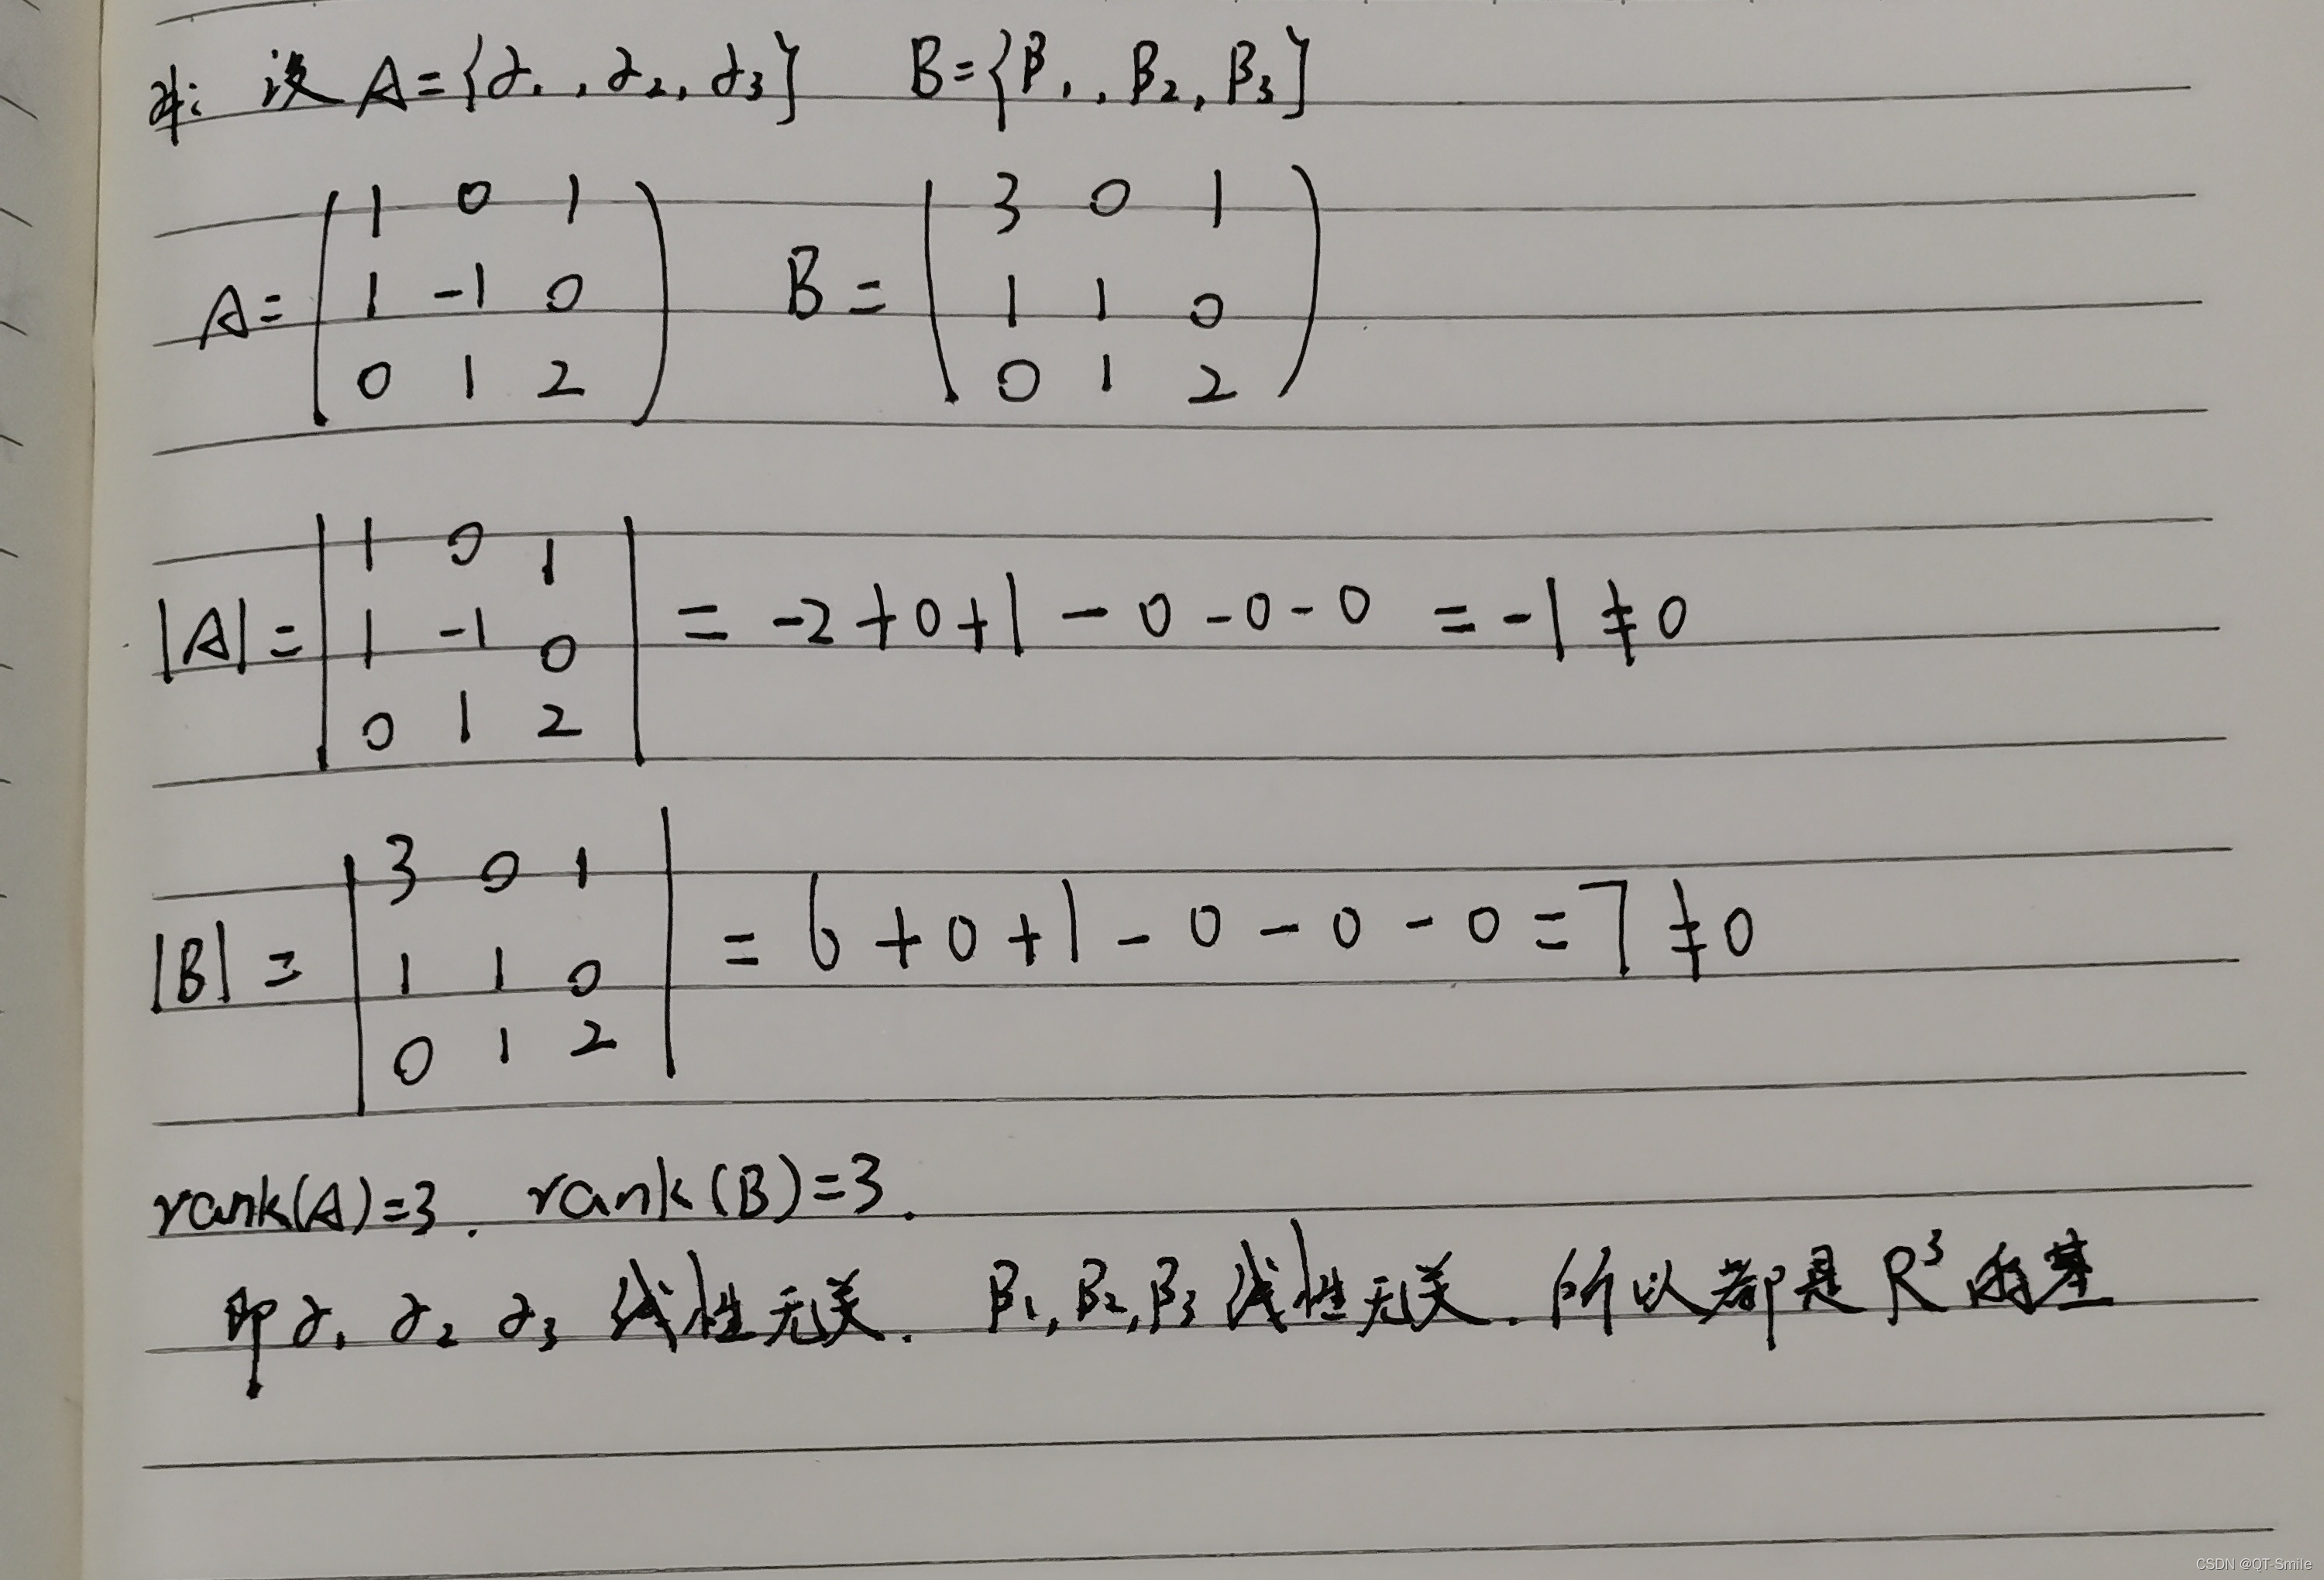 设 A={α₁,α₂,α₃} B={β₁,β₂,β₃}
A=(1 0 1 B=(3 0 1
1 -1 0 1 1 0
0 1 2) 0 1 2)
|A|=|1 0 1
1 -1 0
0 1 2| = -2+0+1-0-0-0 = -1≠0
|B|=|3 0 1
1 1 0
0 1 2| = 6+0+1-0-0-0=7≠0
rank(A)=3. rank(B)=3.
即α₁ α₂ α₃ 线性无关. β₁,β₂,β₃ 线性无关.所以都是R³的基
CSDN @QT-Smile